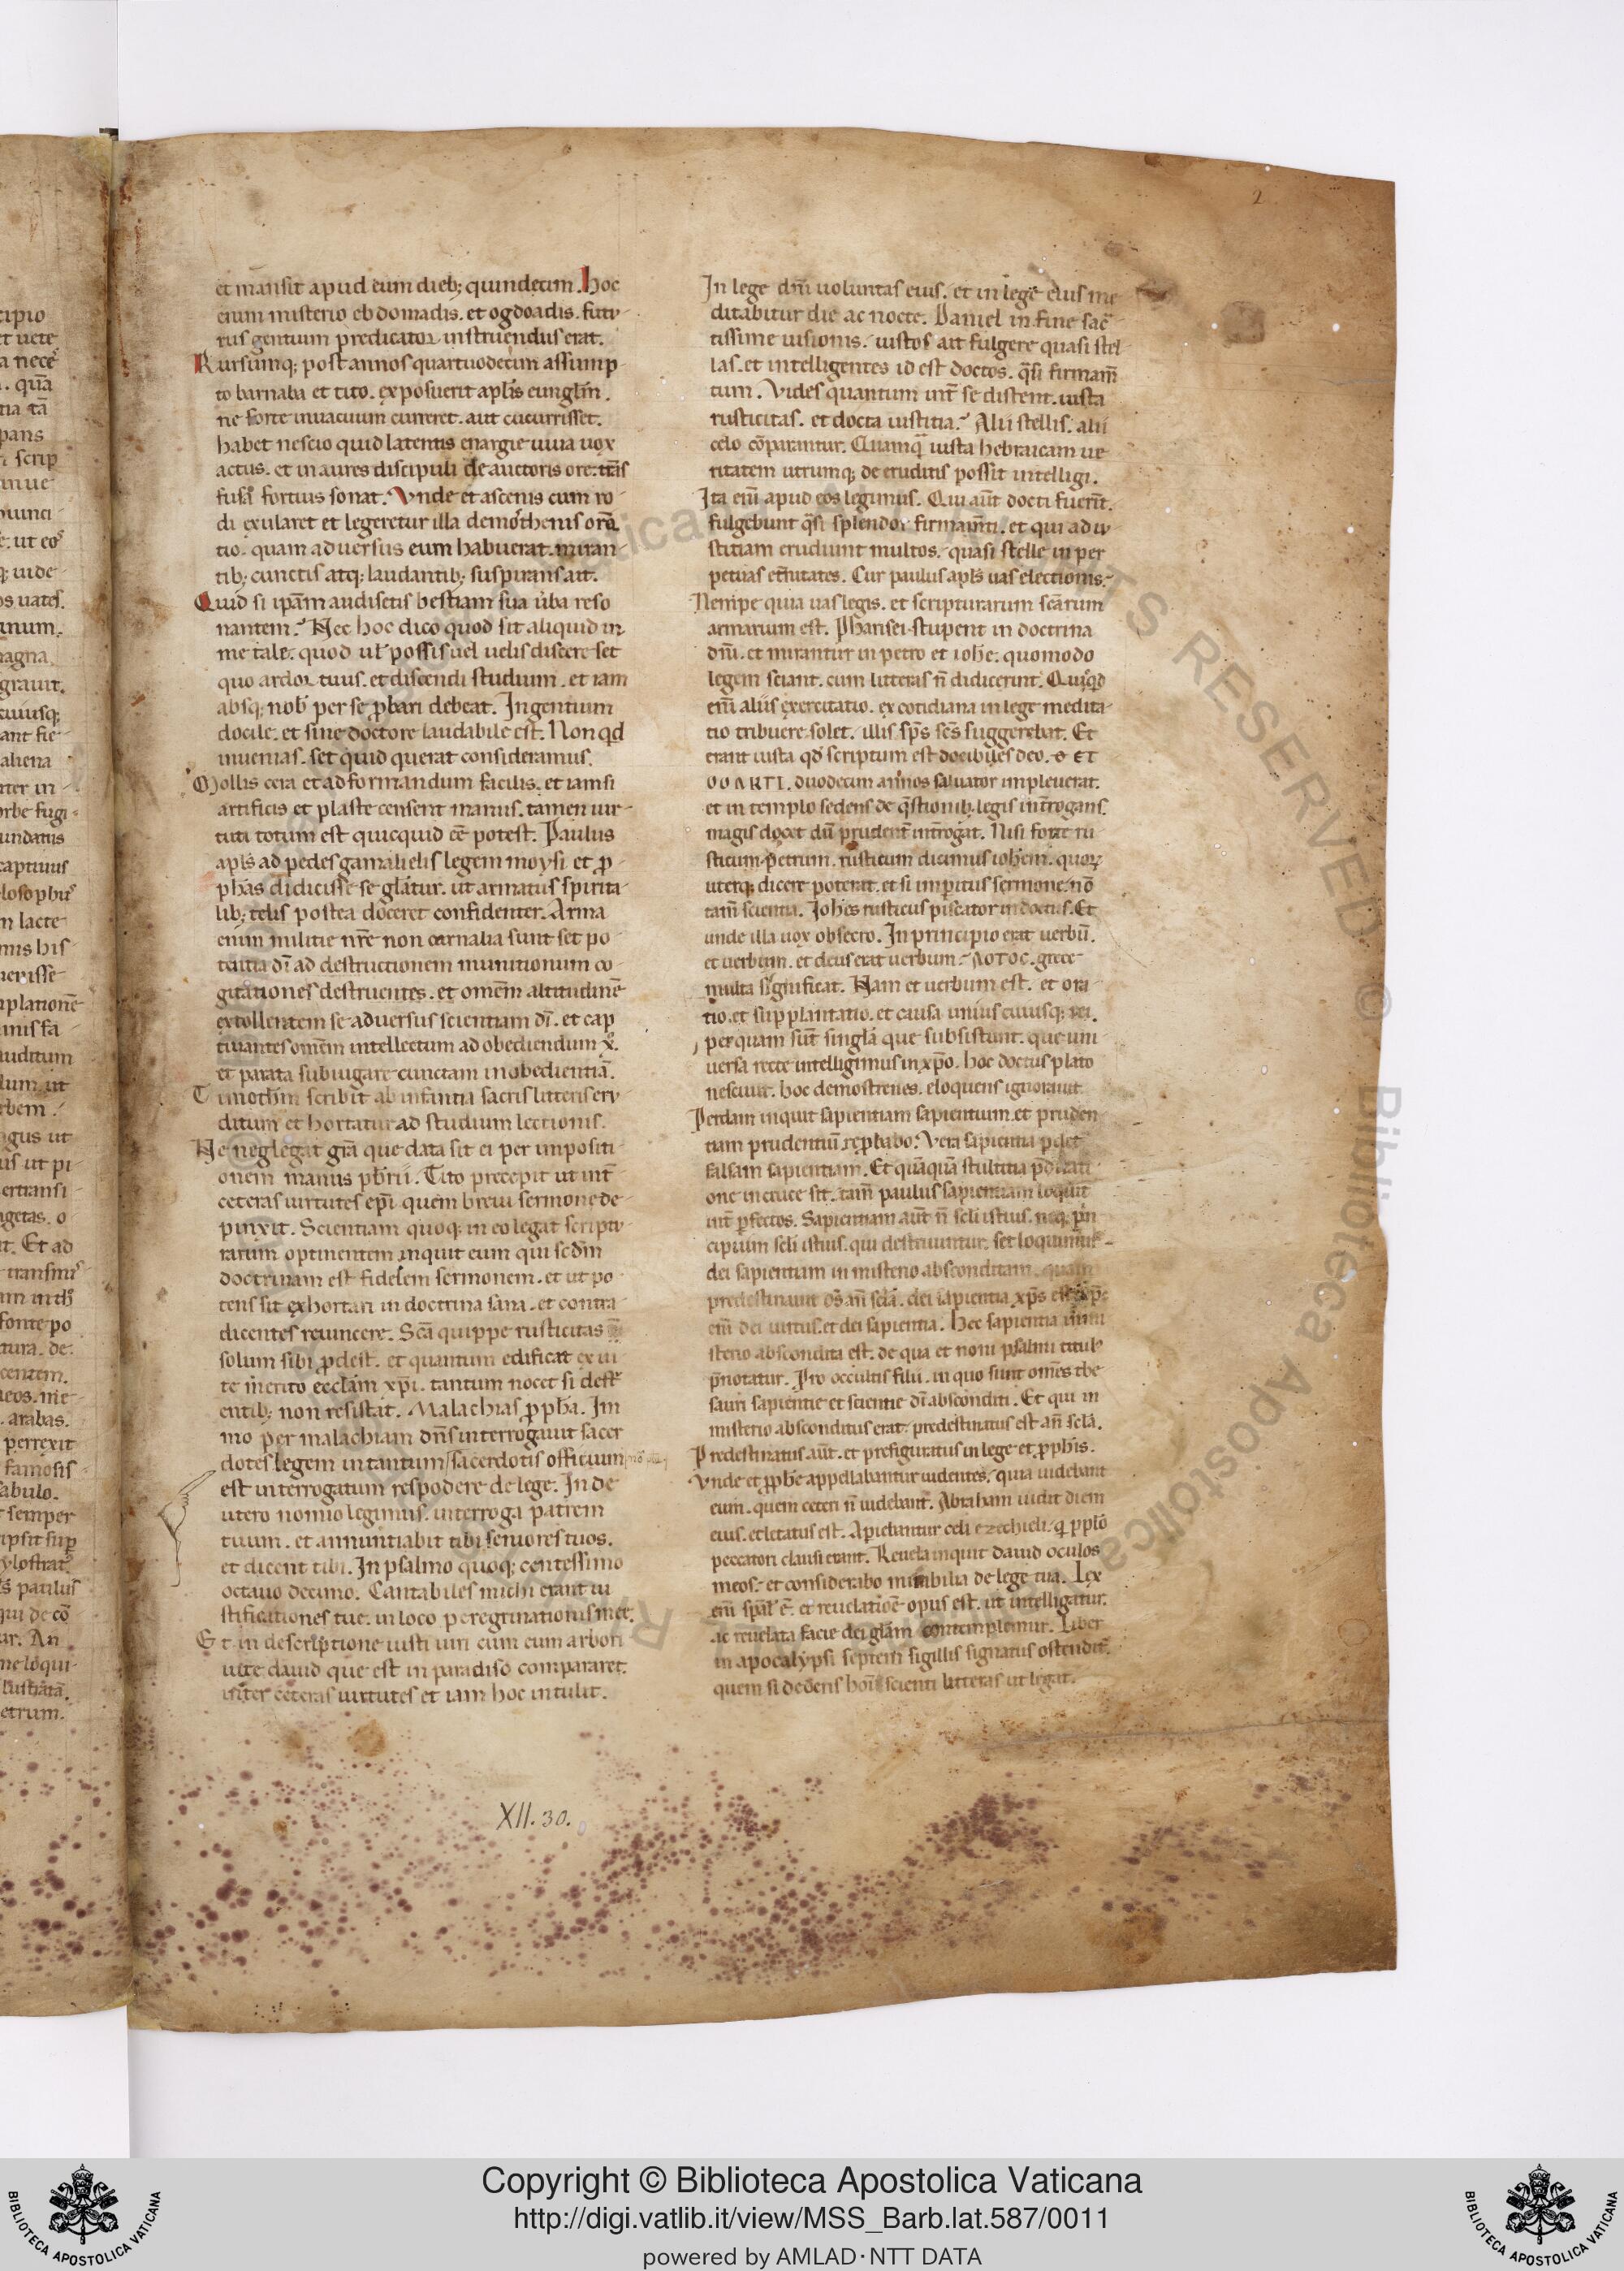 2
et mansit apud eum dieb; quindecim. hoc
enim misterio ebdomadis. et ogdoadis. futu-
rus gentium predicator instruendus erat.
Rursumq; post annos quartuodecim assump-
to barnaba et tito. exposuerit apłis eungłm.
ne forte inuacuum curreret. aut cucurrisset.
habet nescio quid latentis energie uiua uox
actus. et in aures discipuli de auctoris ore. trās
fusa fortius sonat. Vnde et ascenis cum ro-
di exularet et legeretur illa demosthenis orā
tio. quam aduersus eum habuerat. miran-
tib; cunctis atq; laudantib; suspirans ait.
Quid si ipam audisetis bestiam sua uba reso
nantem? Nec hoc dico quod sit aliquid in
me tale. quod uł possis uel uelis discere set
quo ardor tuus. et discendi studium. et iam
absq; nob per se pbari debeat. Ingenium
docile. et sine doctore laudabile est. Non qd
inuenias. set quid querat consideramus.
Mollis cera et ad formandum facilis. et iamsi
artificis et plaste censent manus. tamen uir-
tuti totum est quicquid eē potest. Paulus
apłs ad pedes gamalielis legem moysi et p-
phās didicisse se głatur. ut armatus spirita-
lib; telis postea doceret confidenter. Arma
enim militie nrē non carnalia sunt set po-
tentia dī ad destructionem munitionum co-
gitationes destruentes. et omem altitudinē
extollentem se aduersus scientiam dī. et cap
tiuantes omem intellectum ad obediendum x.
et parata subiugare cunctam inobedientiā.
Timothm scribit ab infantia sacris litteris eru
ditum et hortatur ad studium lectionis.
Ne neglegat grā que data sit ei per impositi-
onem manus pbrii. Tito precepit ut int
ceteras uirtutes epī quem breui sermone de-
pinxit. Scientiam quoq; in eo legat scriptu-
rarum optinentem inquit eum qui scdm
doctrinam est fidelem sermonem. et ut po-
tens sit exhortari in doctrina sana. et contra-
dicentes reuincere. Scā quippe rusticitas
solum sibi pdest. et quantum edificat ex ui-
te merito ecclām xpī. tantum nocet si destr-
entib; non resistat. Malachias ppha. Im
mo per malachiam dns interrogauit sacer
dotes legem in tantum sacerdotis officium
est interrogatum respodere de lege. In de
utero nomio legimus. interroga patrem
tuum. et annuntiabit tibi seniores tuos.
et dicent tibi. In psalmo quoq; centessimo
octauo decimo. Cantabiles michi erant iu
stificationes tue. in loco peregrinationis mee.
Et in descriptione iusti uiri cum eum arbori
uite dauid que est in paradiso compararet.
inter ceteras uirtutes et iam hoc intulit.
In lege dnī uoluntas eius. et in lege eius me
ditabitur die ac nocte. Daniel in fine sac-
tissime uisionis. iustos ait fulgere quasi stel
las. et intelligentes id est doctos. qsi firmam
tum. Vides quantum int se distent. iusta
rusticitas. et docta iustitia? Alii stellis. alii
celo cōparantur. Quamq iusta hebraicam ue
ritatem utrumq; de eruditis possit intelligi.
Ita eni apud eos legimus. Qui aut docti fuerit.
fulgebunt qsi splendor firmamti. et qui ad iu
stitiam erudiunt multos. quasi stelle in per
petuas etnitates. Cur paulus apłs uas electionis.
Nempe quia uas legis. et scripturarum scārum
armarium est. Pharisei stupent in doctrina
dnī. et mirantur in petro et iohe. quomodo
legem sciant. cum litteras n didicerint. Quiqd
eni aliis exercitatio. ex cotidiana in lege medita-
tio tribuere solet. illis. sps scs suggerebat. Et
erant iusta qd scriptum est docibiles deo. Θ ΕΤ
OUAKTI. duodecim annos saluator impleuerat.
et in templo sedens de qstionib; legis introgans.
magis docet dū prudent introgat. Nisi forte ru
sticum petrum. rusticum dicimus iohem. quor
uterq; dicere poterat. et si inpitus sermone. nō
tam scientia. Iohes rusticus piscator indoctus. Et
unde illa uox obsecro. In principio erat uerbū.
et uerbum. et deus erat uerbum. ΛΟΓΟC. grece
multa significat. Nam et uerbum est. et ora
tio. et supplantatio. et causa unius cuiusq; rei.
per quam sūt singla que subsistunt. que uni
uersa recte intelligimus in xpo. hoc doctus plato
nesciuit. hoc demostenes. eloquens ignorauit.
Perdam inquit sapientiam sapientium. et pruden
tiam prudentiū repbabo. Vera sapientia pdet
falsam sapientiam. Et quāquā stultitia pdicati
one in cruce sit. tam paulus sapientiam loquit
int pfectos. Sapientiam aut n scli istius. neq; prin
cipium scli istius. qui destruuntur. set loquimur
dei sapientiam in misterio absconditam. quam
predestinauit ds an scla. dei sapientia xps est. xpc
eni dei uirtus. et dei sapientia. hec sapientia in mi
sterio abscondita est. de qua et noni psalmi titul
pnotatur. Pro occultis filii. in quo sunt omes the
sauri sapientie et scientie dī absconditi. Et qui in
misterio absconditus erat. predestinatus est an scla.
Predestinatus aut. et prefiguratus in lege et pphis.
Vnde et pphe appellabantur uidentes. quia uidebant
eum. quem ceteri n uidebant. Abraham uidit diem
eius. et letatus est. Apiebantur celi ezechieli. q pplo
peccatori clausi erant. Reuela inquit dauid oculos
meos. et considerabo mirabilia de lege tua. Lex
eni spał ē. et reuelatiōe opus est. ut intelligatur.
ac reuelata facie dei głam contemplemur. Liber
in apocalypsi septem sigillis signatus ostendit.
quem si dederis hoi scienti litteras ut legat.
XII. 30.
Copyright © Biblioteca Apostolica Vaticana
http://digi.vatlib.it/view/MSS_Barb.lat.587/0011
powered by AMLAD·NTT DATA
BIBLIOTECA APOSTOLICA VATICANA
BIBLIOTECA APOSTOLICA VATICANA